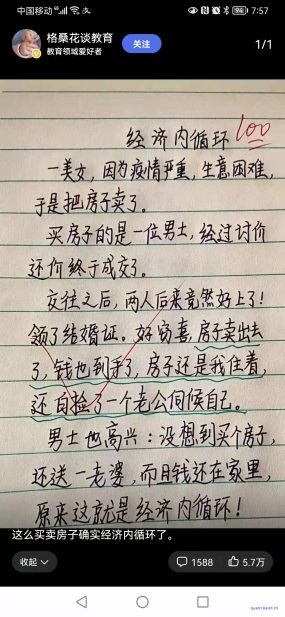 中国移动 4G 7:57
格桑花谈教育
教育领域爱好者
关注
1/1
经济内循环 100
一美女,因为疫情严重,生意困难,
于是把房子卖了。
买房子的是一位男士,经过讨价
还价终于成交了。
交往之后,两人后来竟然好上了!
领了结婚证。好窃喜,房子卖出去
了,钱也到手了,房子还是我住着,
还白捡了一个老公伺候自己。
男士也高兴:没想到买个房子,
还送一老婆,而且钱还在家里,
原来这就是经济内循环!
这么买卖房子确实经济内循环了。
收起
1588
5.7万